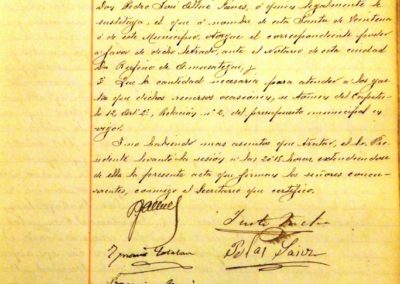 Don Pedro José Ollué Ránes, o quien legalmente le
sustituya, el que a nombre de esta Junta de Ventena
o de este Municipio, otorgue el correspondiente poder
a favor de dicho letrado, ante el Notario de esta ciudad
Don Rufino de
5 Que la cantidad necesaria para atender a los gas
tos que dichos recursos ocasionen, se tomen del Capítulo
12, Art 2º, Relación nº 2, del presupuesto municipal en
vigor.
Y no habiendo mas asuntos que tratar, el Sr. Pre
sidente levantó la sesión a las 20'15 horas, extendiendose
de ella la presente acta que firman los señores concu
rrentes, conmigo el Secretario que certifico.
Ignacio
Pilar Sainz